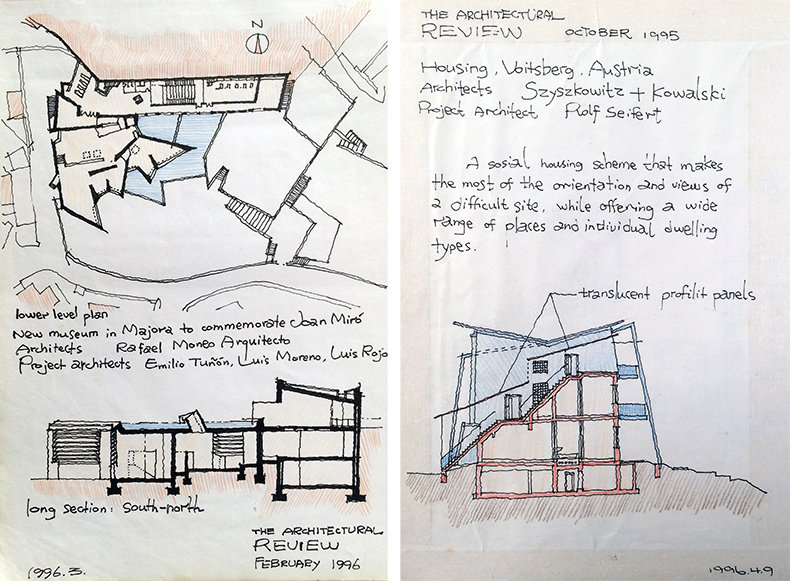 N
lower level plan
New museum in Majora to commemorate Joan Miró
Architects Rafael Moneo Arquitecto
Project architects Emilio Tuñón, Luis Moreno, Luis Rojo
long section: South-north
THE ARCHITECTURAL
REVIEW
FEBRUARY 1996
1996.3.
THE ARCHITECTURAL
REVIEW OCTOBER 1995
Housing, Voitsberg, Austria
Architects Szyszkowitz + Kowalski
Project Architect Rolf Seifert
A sosial housing scheme that makes
the most of the orientation and views of
a difficult site, while offering a wide
range of places and individual dwelling
types.
translucent profilit panels
1996.4.9